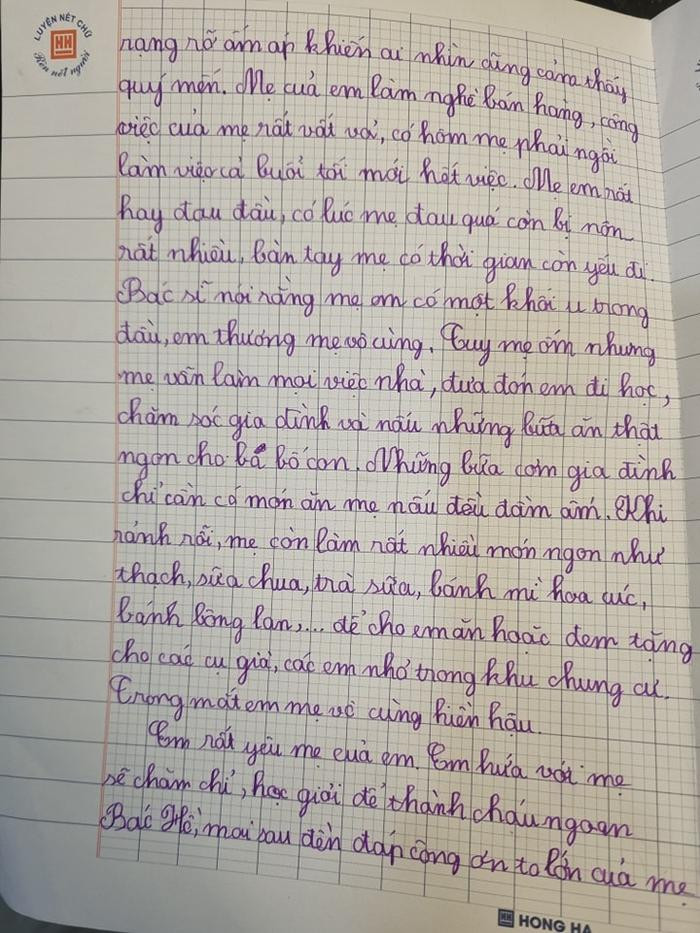 LUYỆN NÉT CHỮ
HH
Rèn nết người
rạng rỡ ấm áp khiến ai nhìn cũng cảm thấy
quý mến. Mẹ của em làm nghề bán hàng, công
việc của mẹ rất vất vả, có hôm mẹ phải ngồi
làm việc cả buổi tối mới hết việc. Mẹ em rất
hay đau đầu, có lúc mẹ đau quá còn bị nôn
rất nhiều, bàn tay mẹ có thời gian còn yếu đi.
Bác sĩ nói rằng mẹ em có một khối u trong
đầu, em thương mẹ vô cùng. Tuy mẹ ốm nhưng
mẹ vẫn làm mọi việc nhà, đưa đón em đi học,
chăm sóc gia đình và nấu những bữa ăn thật
ngon cho ba bố con. Những bữa cơm gia đình
chỉ cần có món ăn mẹ nấu đều đầm ấm. Khi
rảnh rỗi, mẹ còn làm rất nhiều món ngon như
thạch, sữa chua, trà sữa, bánh mì hoa cúc,
bánh bông lan,... để cho em ăn hoặc đem tặng
cho các cụ già, các em nhỏ trong khu chung cư.
Trong mắt em mẹ vô cùng hiền hậu.
Em rất yêu mẹ của em. Em hứa với mẹ
sẽ chăm chỉ, học giỏi để thành cháu ngoan
Bác Hồ, mai sau đền đáp công ơn to lớn của mẹ
HH HONG HA